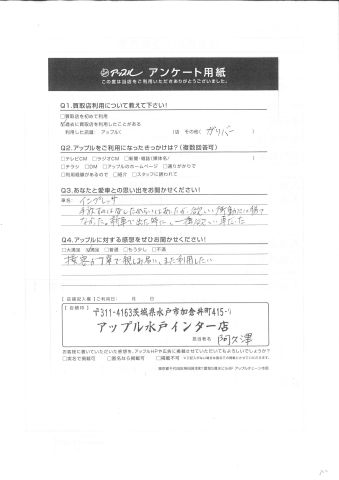 アップル アンケート用紙
この度は当店をご利用いただきありがとうございました。
Q1.買取店利用について教えて下さい!
□買取を初めて利用
☑過去に買取店を利用したことがある
利用した店舗 アップル( )店 その他( ガリバー )
Q2.アップルをご利用になったきっかけは?(複数回答可)
□テレビCM □ラジオCM □新聞・雑誌(媒体名/ )
□チラシ □DM □アップルのホームページ □通りがかりで
□利用経験があるので □紹介 □スタッフに誘われて
Q3.あなたと愛車との思い出をお聞かせください!
車名: インプレッサ
Q4.アップルに対する感想をぜひお聞かせください!
□大満足 ☑満足 □普通 □もう少し □不満
接客が丁寧で親しみ易い、また利用したい
【店頭記入欄】ご利用日: 月 日
【店舗印】
〒311-4163茨城県水戸市加倉井町415-1
アップル水戸インター店
担当者名 阿久澤
お客様に書いていただいた感想を、アップルHPや広告に掲載させていただいてもよろしいでしょうか?
□実名で掲載可 □匿名なら掲載可 □掲載不可